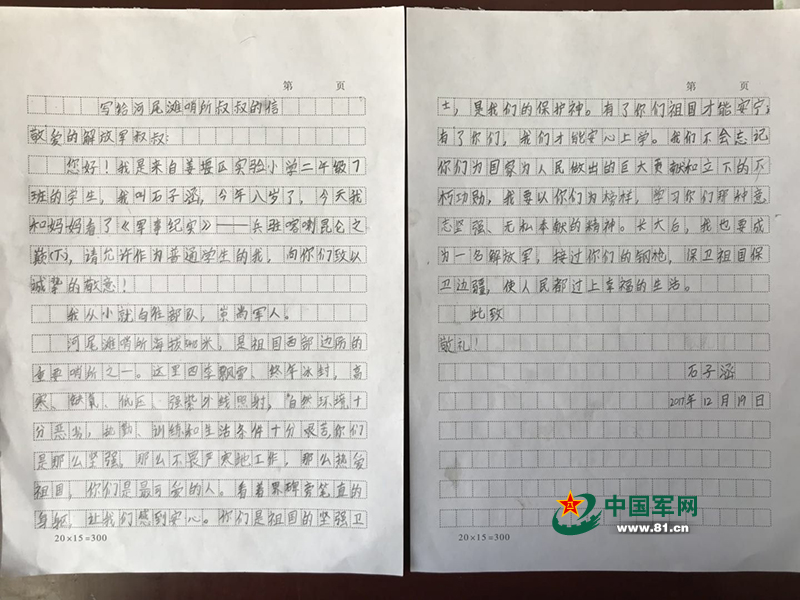 第 页
写给河尾滩哨所叔叔的信
敬爱的解放军叔叔:
您好!我是来自姜堰区实验小学二年级7
班的学生,我叫石子涵,今年八岁了,今天我
和妈妈看了《军事纪实》——兵驻喀喇昆仑之
巅(下),请允许作为普通学生的我,向你们致以
诚挚的敬意!
我从小就向往部队,崇尚军人。
河尾滩哨所海拔 米,是祖国西部边防的
重要哨所之一。这里四季飘雪、终年冰封,高
寒、缺氧、低压、强紫外线照射,自然环境十
分恶劣,执勤、训练和生活条件十分艰苦,你们
是那么坚强,那么不畏严寒地工作,那么热爱
祖国,你们是最可爱的人。看着界碑旁笔直的
身躯,让我们感到安心。你们是祖国的坚强卫
20×15=300
第 页
士,是我们的保护神。有了你们祖国才能安宁;
有了你们,我们才能安心上学。我们不会忘记
你们为国家为人民做出的巨大贡献和立下的不
朽功勋,我要以你们为榜样,学习你们那种意
志坚强、无私奉献的精神。长大后,我也要成
为一名解放军,接过你们的钢枪,保卫祖国保
卫边疆,使人民都过上幸福的生活。
此致
敬礼!
石子涵
2017年12月19日
20×15=300
八一
中国军网
www.81.cn